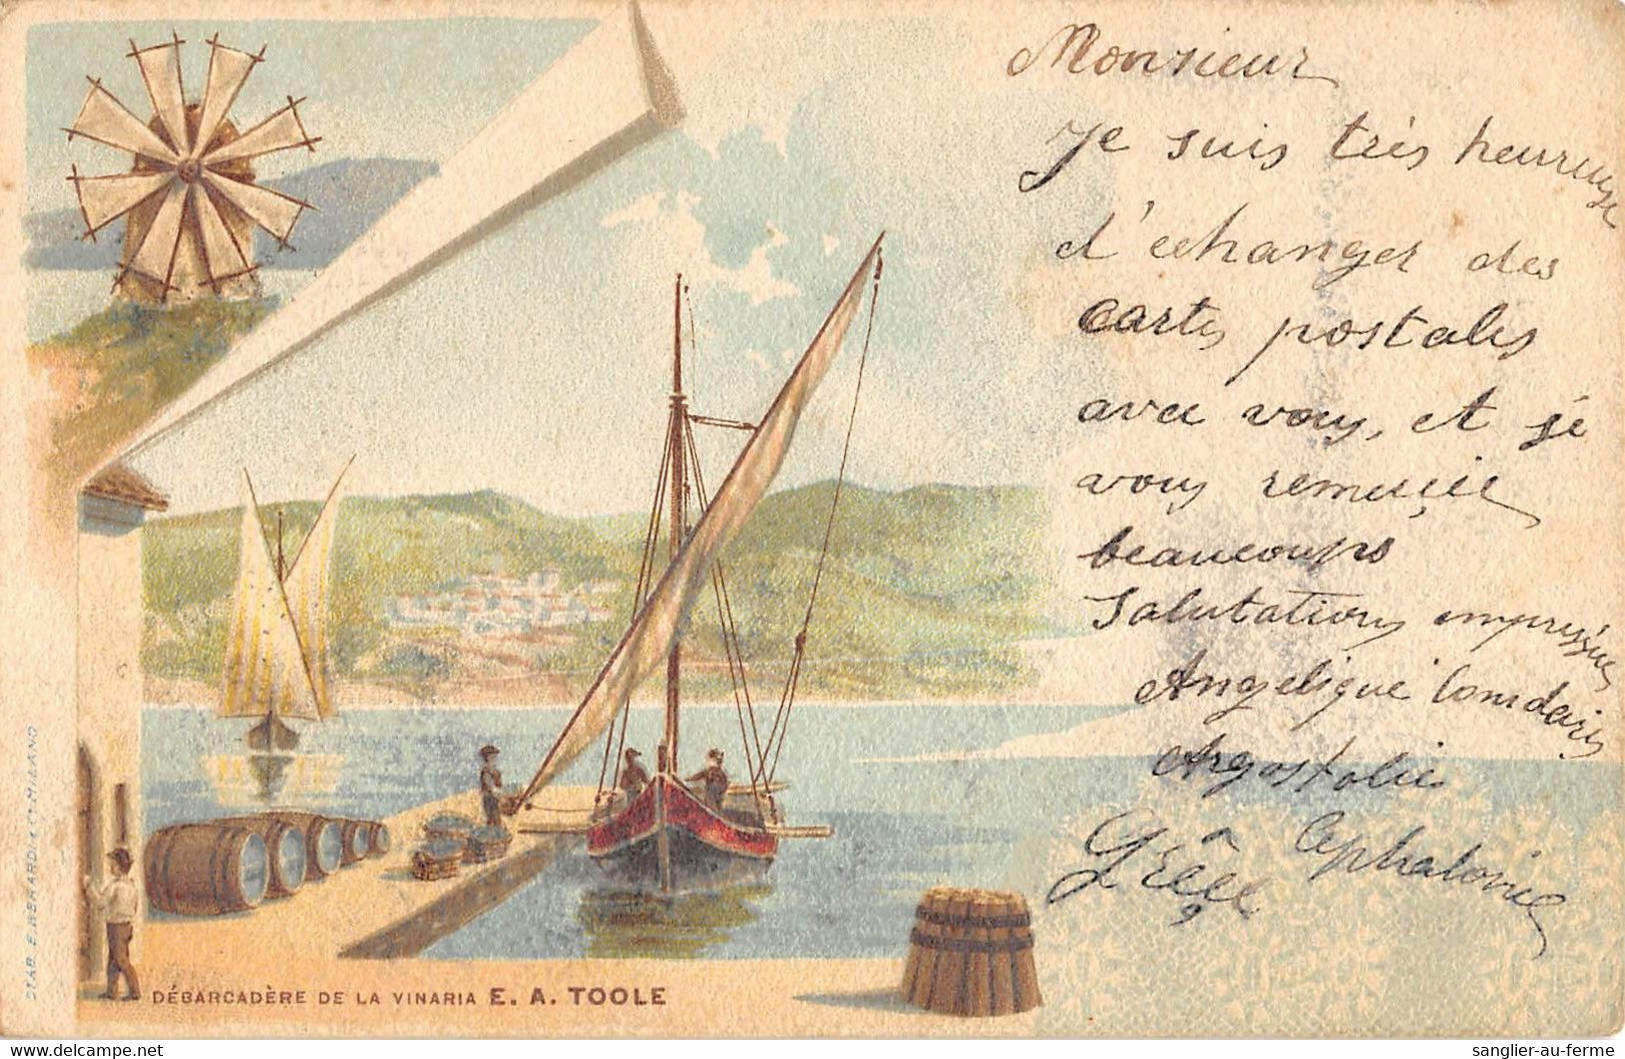 Monsieur
Je suis très heureuse
d'échanger des
cartes postales
avec vous, et je
vous remerçie
beaucoups
Salutations empressées
Angelique
Argostolie
Cephalonie
Grèce
DÉBARCADÈRE DE LA VINARIA E. A. TOOLE
STAB. F. BERARDI & C. MILANO
www.delcampe.net
sanglier-au-ferme